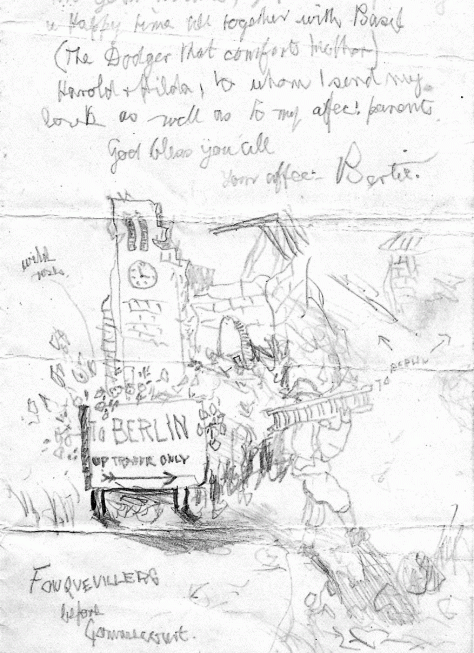 a Happy time all together with Basil
(The Dodger that comforts mother)
Harold & Hilda, to whom I send my
love as well as to my affec: parents.
God bless you all
Your affec:- Bertie.
wild
TO BERLIN
TO BERLIN
UP TRAFFIC ONLY
FONQUEVILLERS
before
Gommecourt.